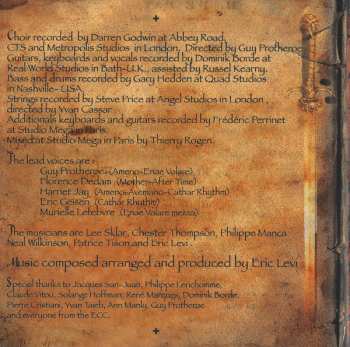 Choir recorded by Darren Godwin at Abbey Road,
CTS and Metropolis Studios in London, Directed by Guy Protheroe
Guitars, keyboards and vocals recorded by Dominik Borde at
Real World Studios in Bath-U.K., assisted by Russel Kearny.
Bass and drums recorded by Gary Hedden at Quad Studios
in Nashville- USA
Strings recorded by Steve Price at Angel Studios in London ,
directed by Yvan Cassar .
Additionals keyboards and guitars recorded by Frédéric Perrinet
at Studio Mega in Paris.
Mixed at Studio Mega in Paris by Thierry Rogen.
The lead voices are :
Guy Protheroe (Ameno-Enae Volare)
Florence Dedam (Mother-After Time)
Harriet Jay (Ameno-Avemano-Cathar Rhythm)
Eric Geisen (Cathar Rhythm)
Murielle Lefebvre (Enae Volare mezzo)
The musicians are Lee Sklar, Chester Thompson, Philippe Manca
Neal Wilkinson, Patrice Tison and Eric Levi .
Music composed arranged and produced by Eric Levi
Special thanks to Jacques San-Juan, Philippe Lerichomme,
Claude Vitou, Solange Hoffman, René Marquejs, Dominik Borde,
Pierre Cristiani, Yvan Taieb, Ann Manly, Guy Protheroe
and everyone from the ECC.